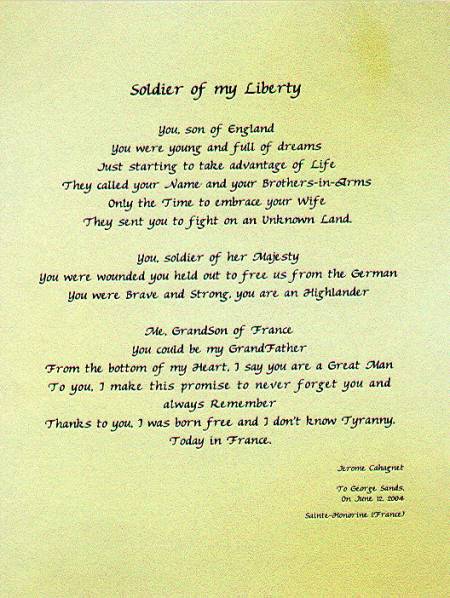 Soldier of my Liberty
You, son of England
You were young and full of dreams
Just starting to take advantage of Life
They called your Name and your Brothers-in-Arms
Only the Time to embrace your Wife
They sent you to fight on an Unknown Land.
You, soldier of her Majesty
You were wounded you held out to free us from the German
You were Brave and Strong, you are an Highlander
Me, GrandSon of France
You could be my GrandFather
From the bottom of my Heart, I say you are a Great Man
To you, I make this promise to never forget you and
always Remember
Thanks to you, I was born free and I don't know Tyranny.
Today in France.
Jerome Cahagnet
To George Sands,
On June 12, 2004
Sainte-Honorine (France)